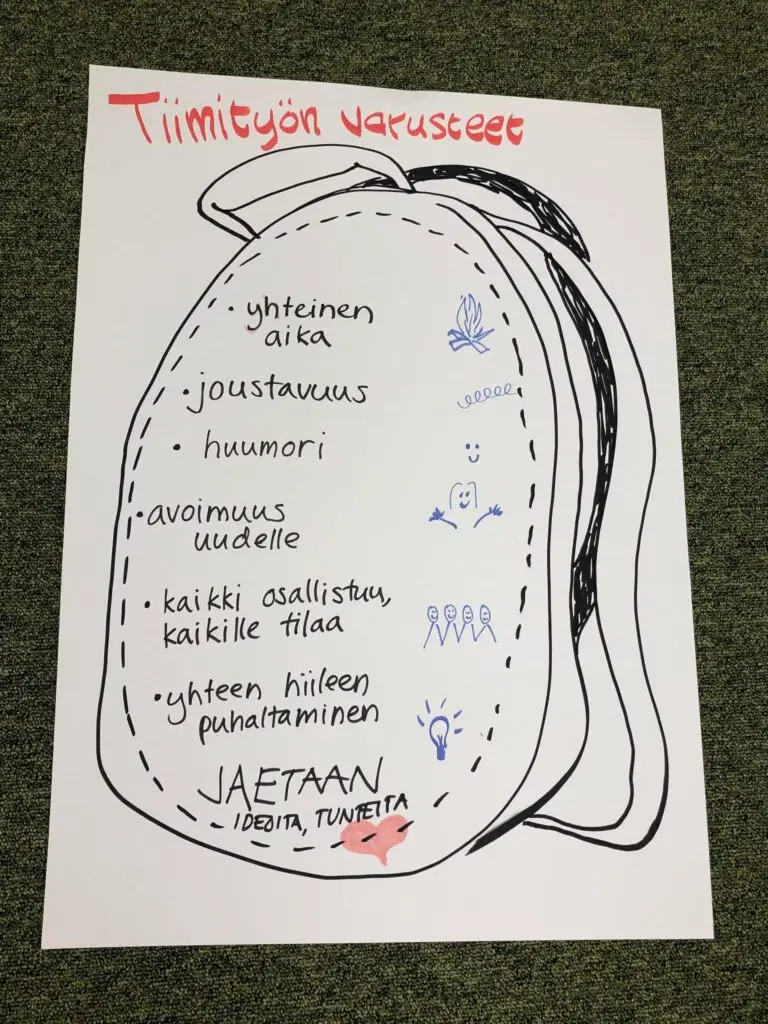 Tiimityön varusteet
• yhteinen
aika
• joustavuus
• huumori
• avoimuus
uudelle
• kaikki osallistuu,
kaikille tilaa
• yhteen hiileen
puhaltaminen
JAETAAN
IDEOITA, TUNTEITA